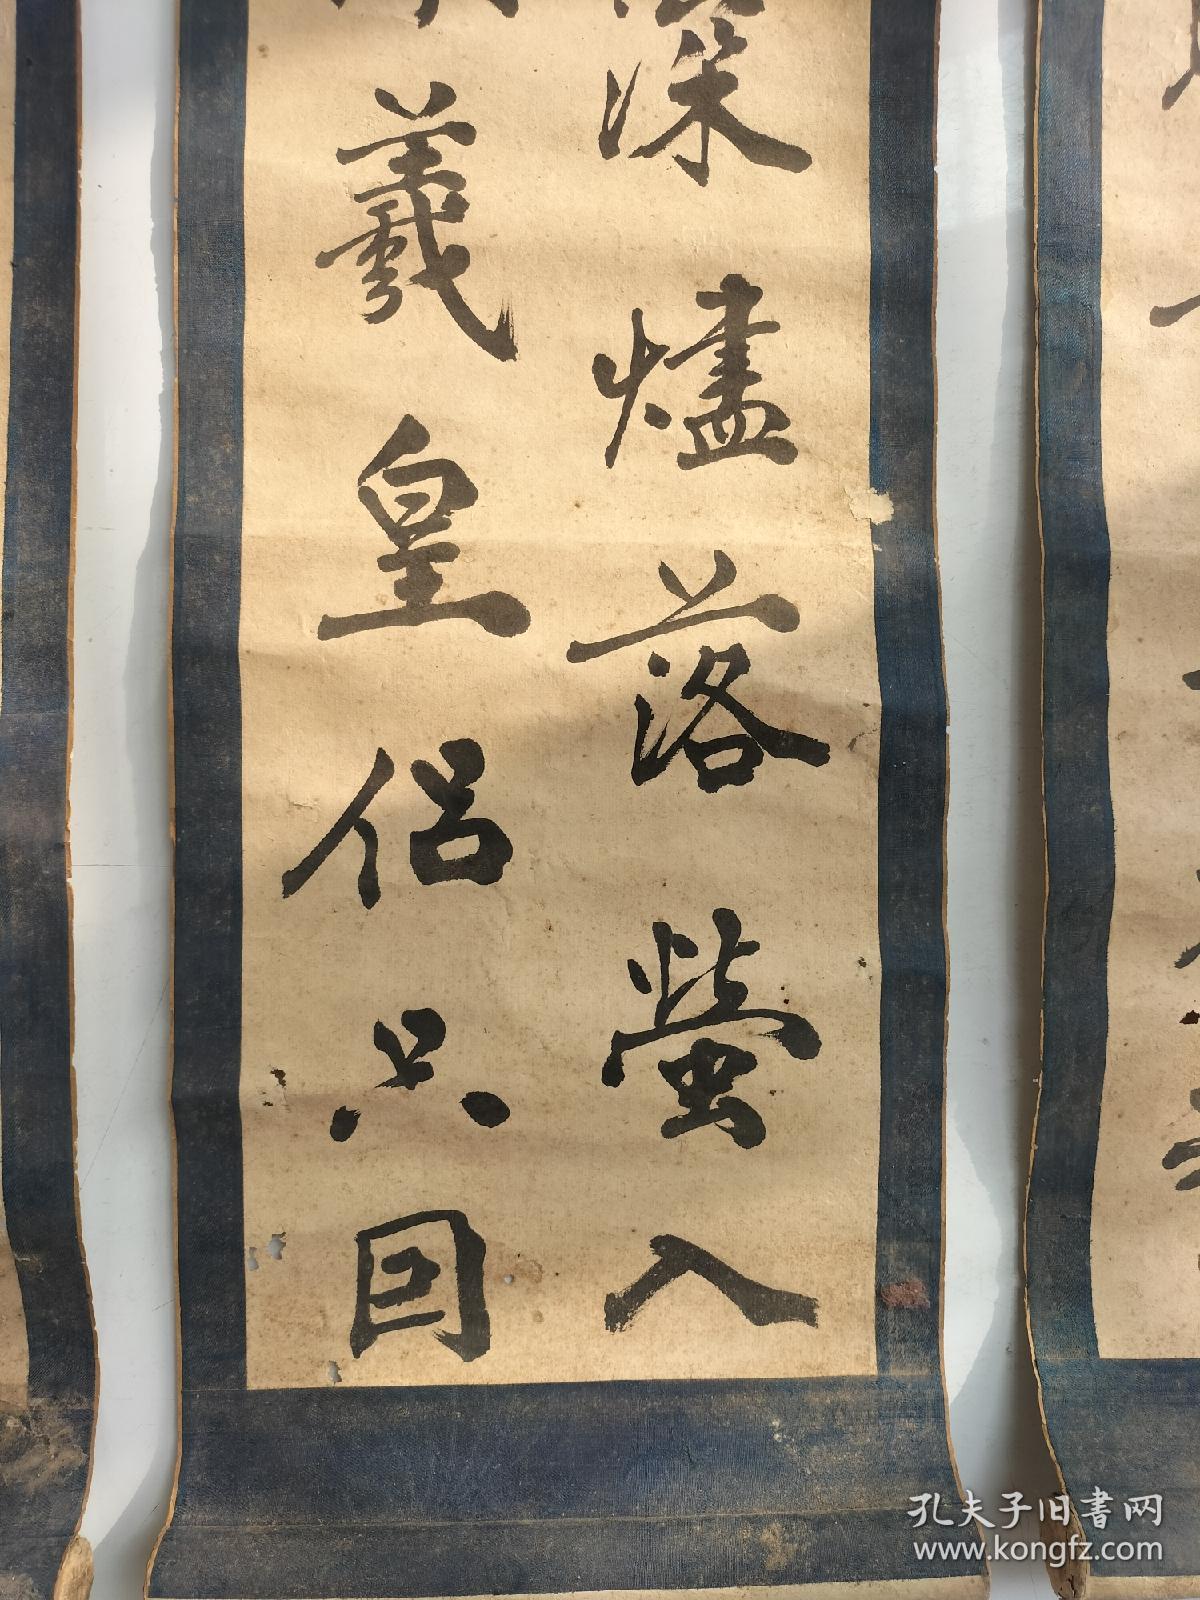 深爐落螢入
羲皇侣只因
孔夫子旧書网
www.kongfz.com